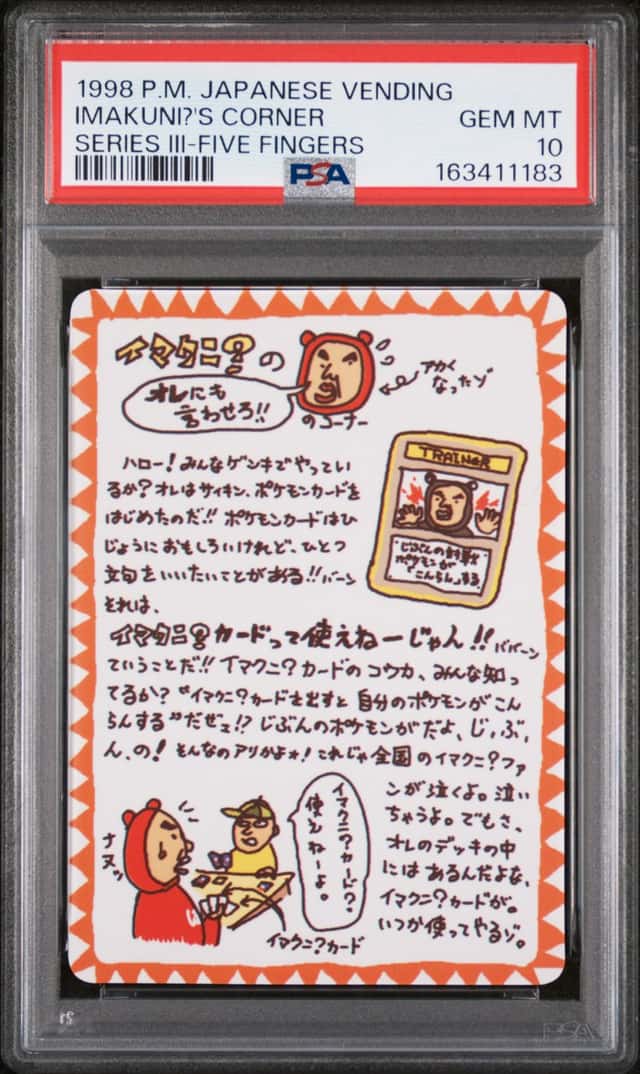 1998 P.M. JAPANESE VENDING
IMAKUNI?'S CORNER GEM MT
SERIES III-FIVE FINGERS 10
PSA 163411183
イマクニ?の
オレにも
言わせろ!!
のコーナー
アカく
なったゾ
ハロー!みんなゲンキでやってい
るか?オレはサイキン、ポケモンカードを
はじめたのだ!!ポケモンカードはひ
じょうにおもしろいけれど、ひとつ
文句をいいたいことがある!!バーン
それは、
TRAINER
じぶんの
ポケモンが
「こんらん」する
イマクニ?カードって使えねーじゃん!!ババーン
ていうことだ!!イマクニ?カードのコウカ、みんな知っ
てるか?“イマクニ?カードを出すと自分のポケモンがこん
らんする”だぜェ!?じぶんのポケモンがだよ、じ,ぶ,
ん,の!そんなのアリかよォ!これじゃ全国のイマクニ?ファ
ンが泣くよ。泣い
ちゃうよ。でもさ、
オレのデッキの中
にはあるんだよな、
イマクニ?カードが。
いつか使ってやるゾ。
イマクニ?カード?
使えねーよ。
ナヌッ
イマクニ?カード
PSA